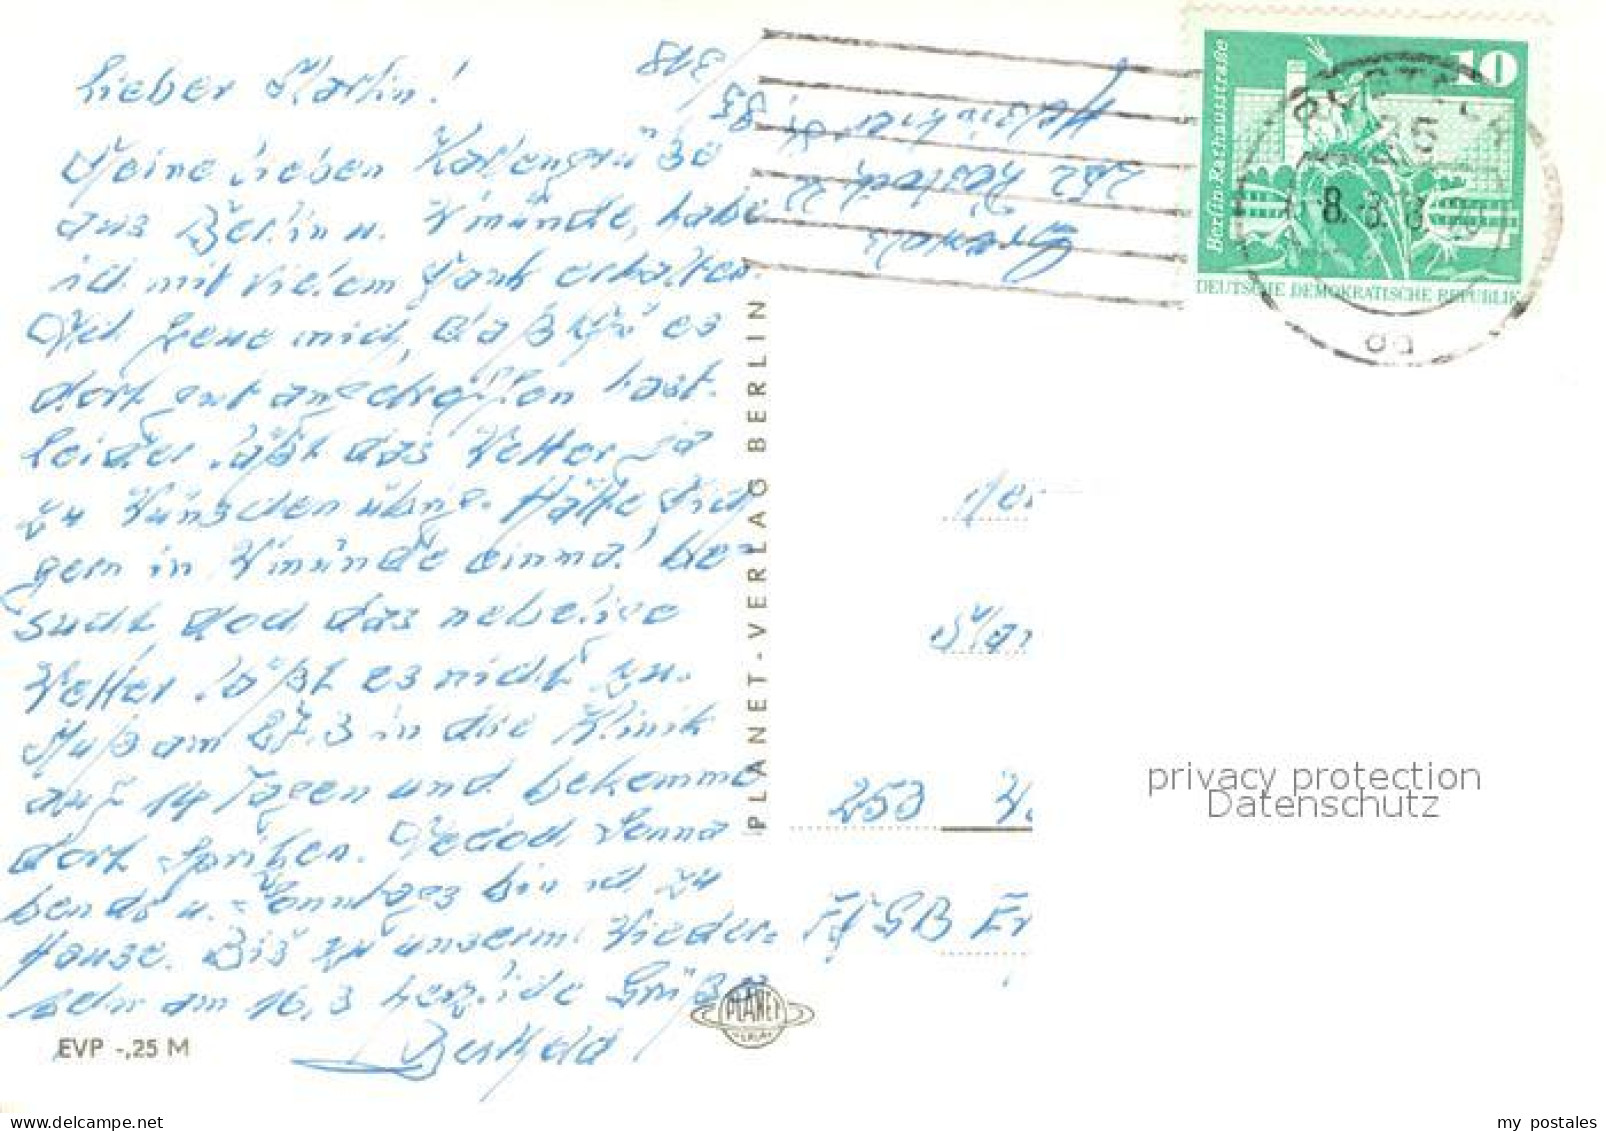 Lieber Martin!
Deine lieben Kartengrüße
aus Berlin u. W'münde, habe
ich mit vielem Dank erhalten.
freue mich, daß es
dort gut angetroffen hast.
Leider läßt das Wetter ja
zu Wünschen übrig. Hätte Dich
gern in W'münde einmal be-
sucht doch das nebelige
Wetter läßt es nicht zu.
Muß am 27.3 in die Klinik
auf 14 Tagen und bekomme
dort Spritzen. Jedoch Sonna
bends u. Sonntags bin ich zu
Hause. Bis zu unserm Wieder=
sehn am 16.3 herzliche Grüße
EVP -,25 M
PLANET-VERLAG BERLIN
PLANET
VERLAG
3/78
252 Rostock 22
10
Berlin·Rathausstraße
DEUTSCHE DEMOKRATISCHE REPUBLIK
8.3.
253
FDGB
privacy protection
Datenschutz
delcampe.net
my_postales